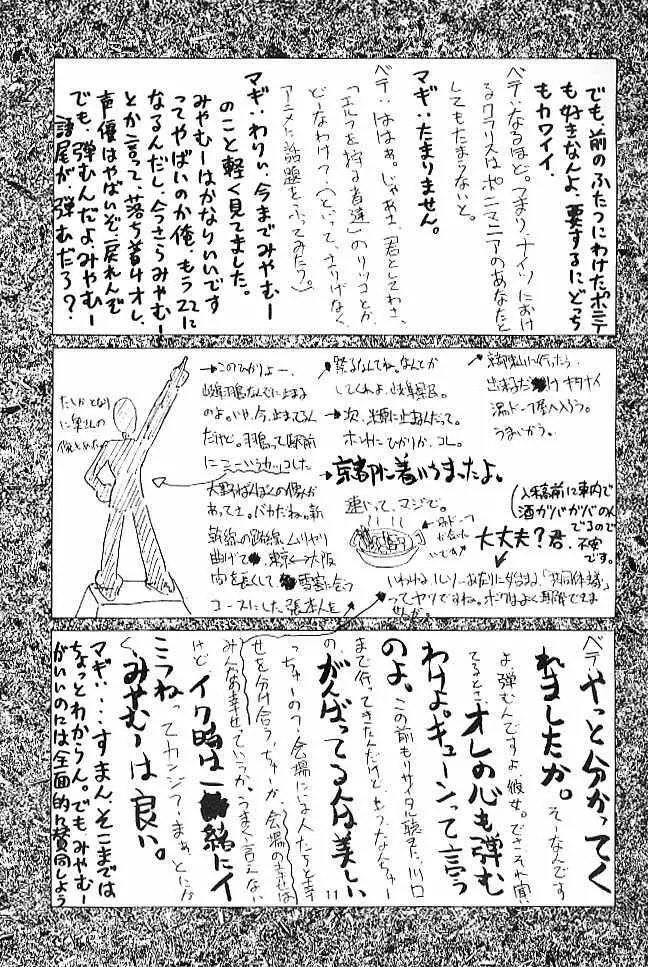 でも、前のふたつにわけたポニテ
も好きなんよ、要するにどっち
もカワイイ。
ベテ:なるほど。つまり、ナイツにおけ
るクラリスはポニマニアのあなたと
してもたまらないと。
マギ:たまりません。
ベテ:ははぁ。じゃあさ、君としてわさ、
「エルフを狩る者達」のリツコとか、
どーなわけ?(といって、さりげなく
アニメに話題をふってみたりう。)
マギ:わりぃ、今までみやむー
のこと軽く見てました。
みやむーはかなりいいです
ってやばいのか俺、もう22に
なるんだし、今さらみやむー
とか言って、落ち着けオレ、
声優はやばいぞ、戻れんぞ
でも、弾むんだよみやむー
語尾が弾むだろ?
京都に行ったら、
キタナイ
うまいかう。
してくれよ、岐阜県民。
→次、米原に止まるんだって。
ホントにひかりか、コレ。
→京都に着いちまったよ。
速いって、マジで。
(入稿前に車内で
酒ガバガバのん
でるので
不安
です。
大丈夫?君、
→このひかりよー、
岐阜羽島なんぞに止まる
のよ。いや、今、止まってるん
だけど。羽島って駅前
にニーッカッコした
大野ばんぼくの像が
あってさ。バカだね。新
幹線の路線、ムリヤリ
曲げて 東京〜大阪
間を長くして 雪害に会う
コースにした張本人を
たしかとなり
に奥さんの
像もあった
ベテ:やっと分かってく
れましたか。そーなんです
よ、弾むんですよ、彼女。でさ、それ聞い
てるとさ、オレの心も弾む
わけよ。キューンって言う
のよ、この前もリサイタル聴きに、川口
まで行ってきたんだけど、もうなんちゅー
の、がんばってる人は美しい
っちゅーの?会場にいる人たちと幸
せを分け合う、ちゅーか、会場の幸せは
みんなの幸せっていうか、うまく言えない
けど イク時は一緒にイ
こうねってカンジ?ーまぁ、とにか
く、みやむーは良い。
マギ:…すまん、そこまでは
ちょっとわからん。でもみやむー
がいいのには全面的に賛同しよう